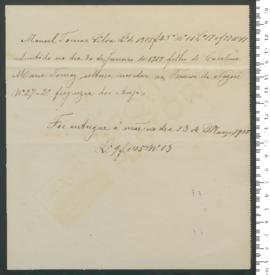 Manuel Tomaz Silva Lº 1915 f 23 Nº
Admitido no dia 10 de Janeiro de 1915, filho de Carolina
Maria Tomaz solteira moradora na Travessa do
Nº 27-2º freguezia dos Anjos
Foi entregue á mãe no dia 13 de Março 1915
Lº 9 f 145 Nº 13